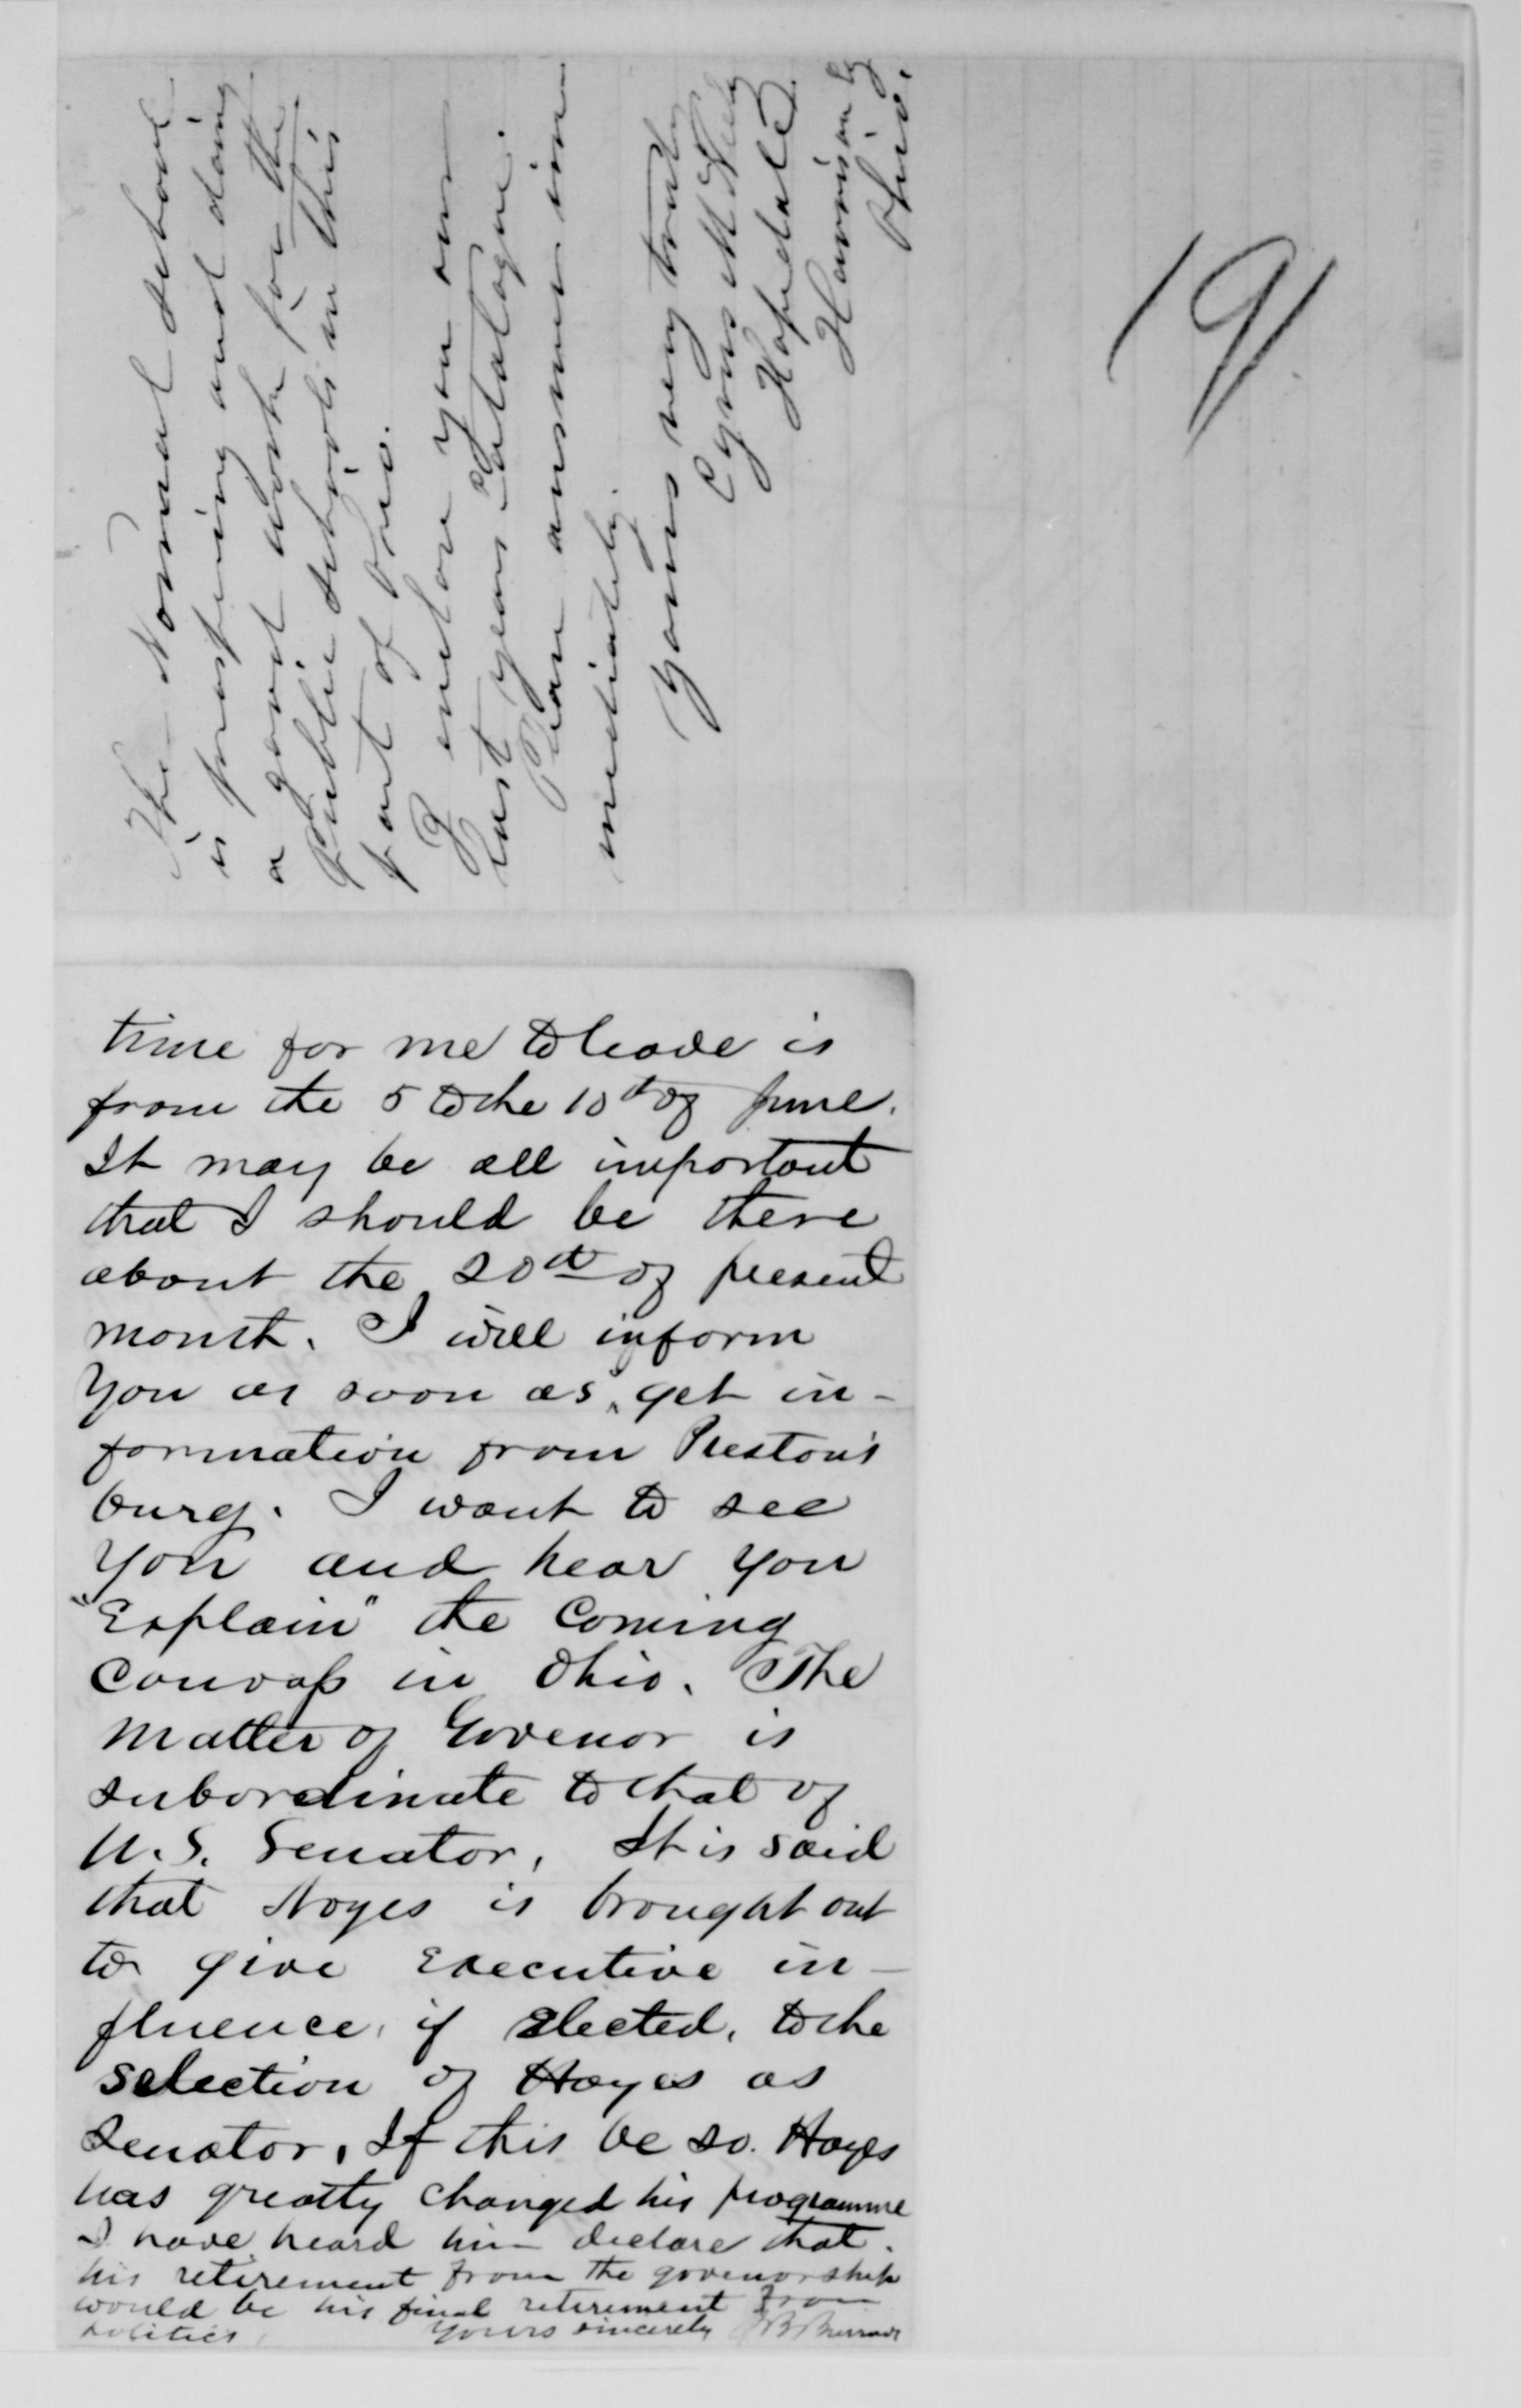 The Normal School
is prospering and doing
a good work for the
Public Schools in this
part of Ohio.
I enclose you our
last years Catalogue.
Please answer im
mediately.
Yours very truly
Cyrus McNeely
Hopedale
Harrison Co
Ohio.
191
time for me to leave is
from the 5 to the 10th of June.
It may be all important
that I should be there
about the 20th of present
month. I will inform
you as soon as get in-
formation from Prestons
burg. I want to see
you and hear you
"Explain" the Coming
Convass in Ohio. The
matter of Govenor is
subordinate to that of
U.S. Senator, It is said
that Noyes is brought out
to give Executive in-
fluence, if elected, to the
selection of Hayes as
Senator. If this be so. Hayes
has greatly changed his programme
I have heard him declare that
his retirement from the govenorship
would be his final retirement from
politics,
Yours sincerely